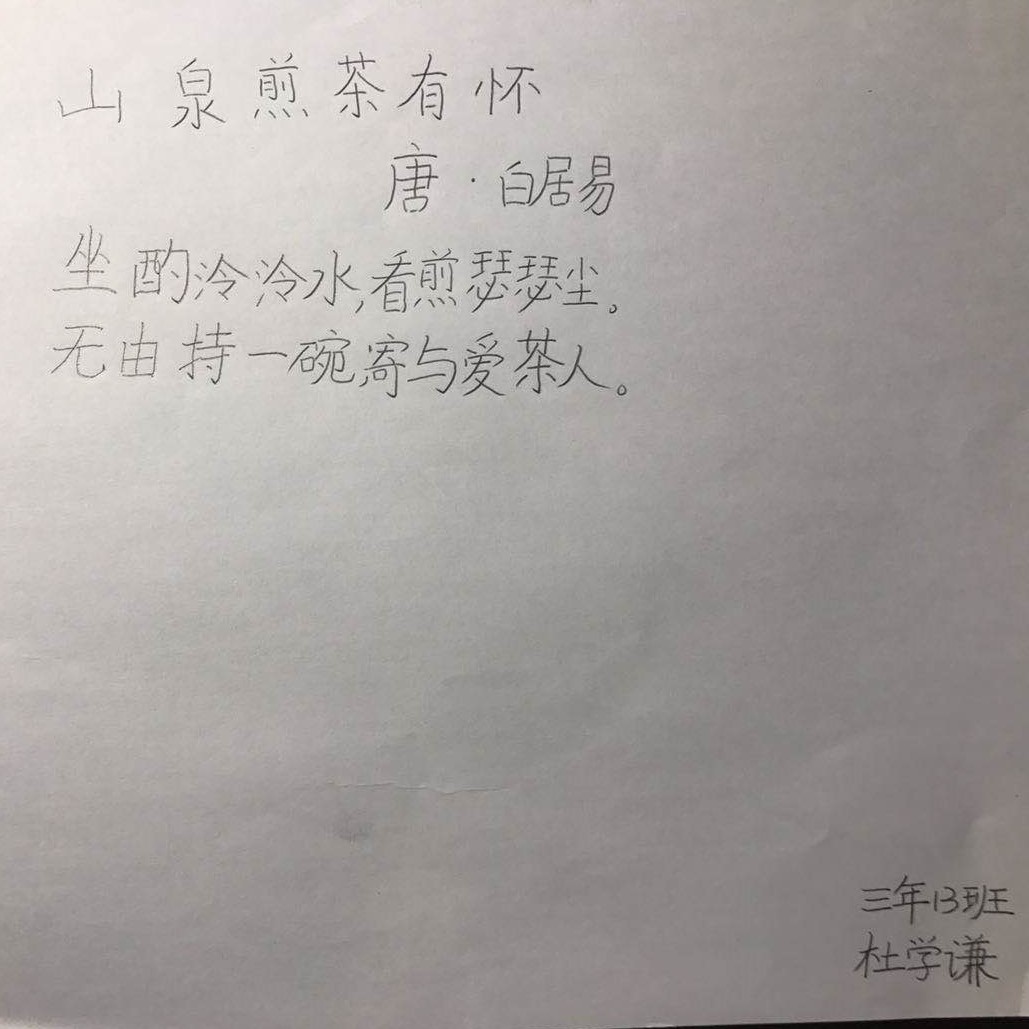 山泉煎茶有怀
唐·白居易
坐酌泠泠水,看煎瑟瑟尘。
无由持一碗,寄与爱茶人。
三年13班
杜学谦